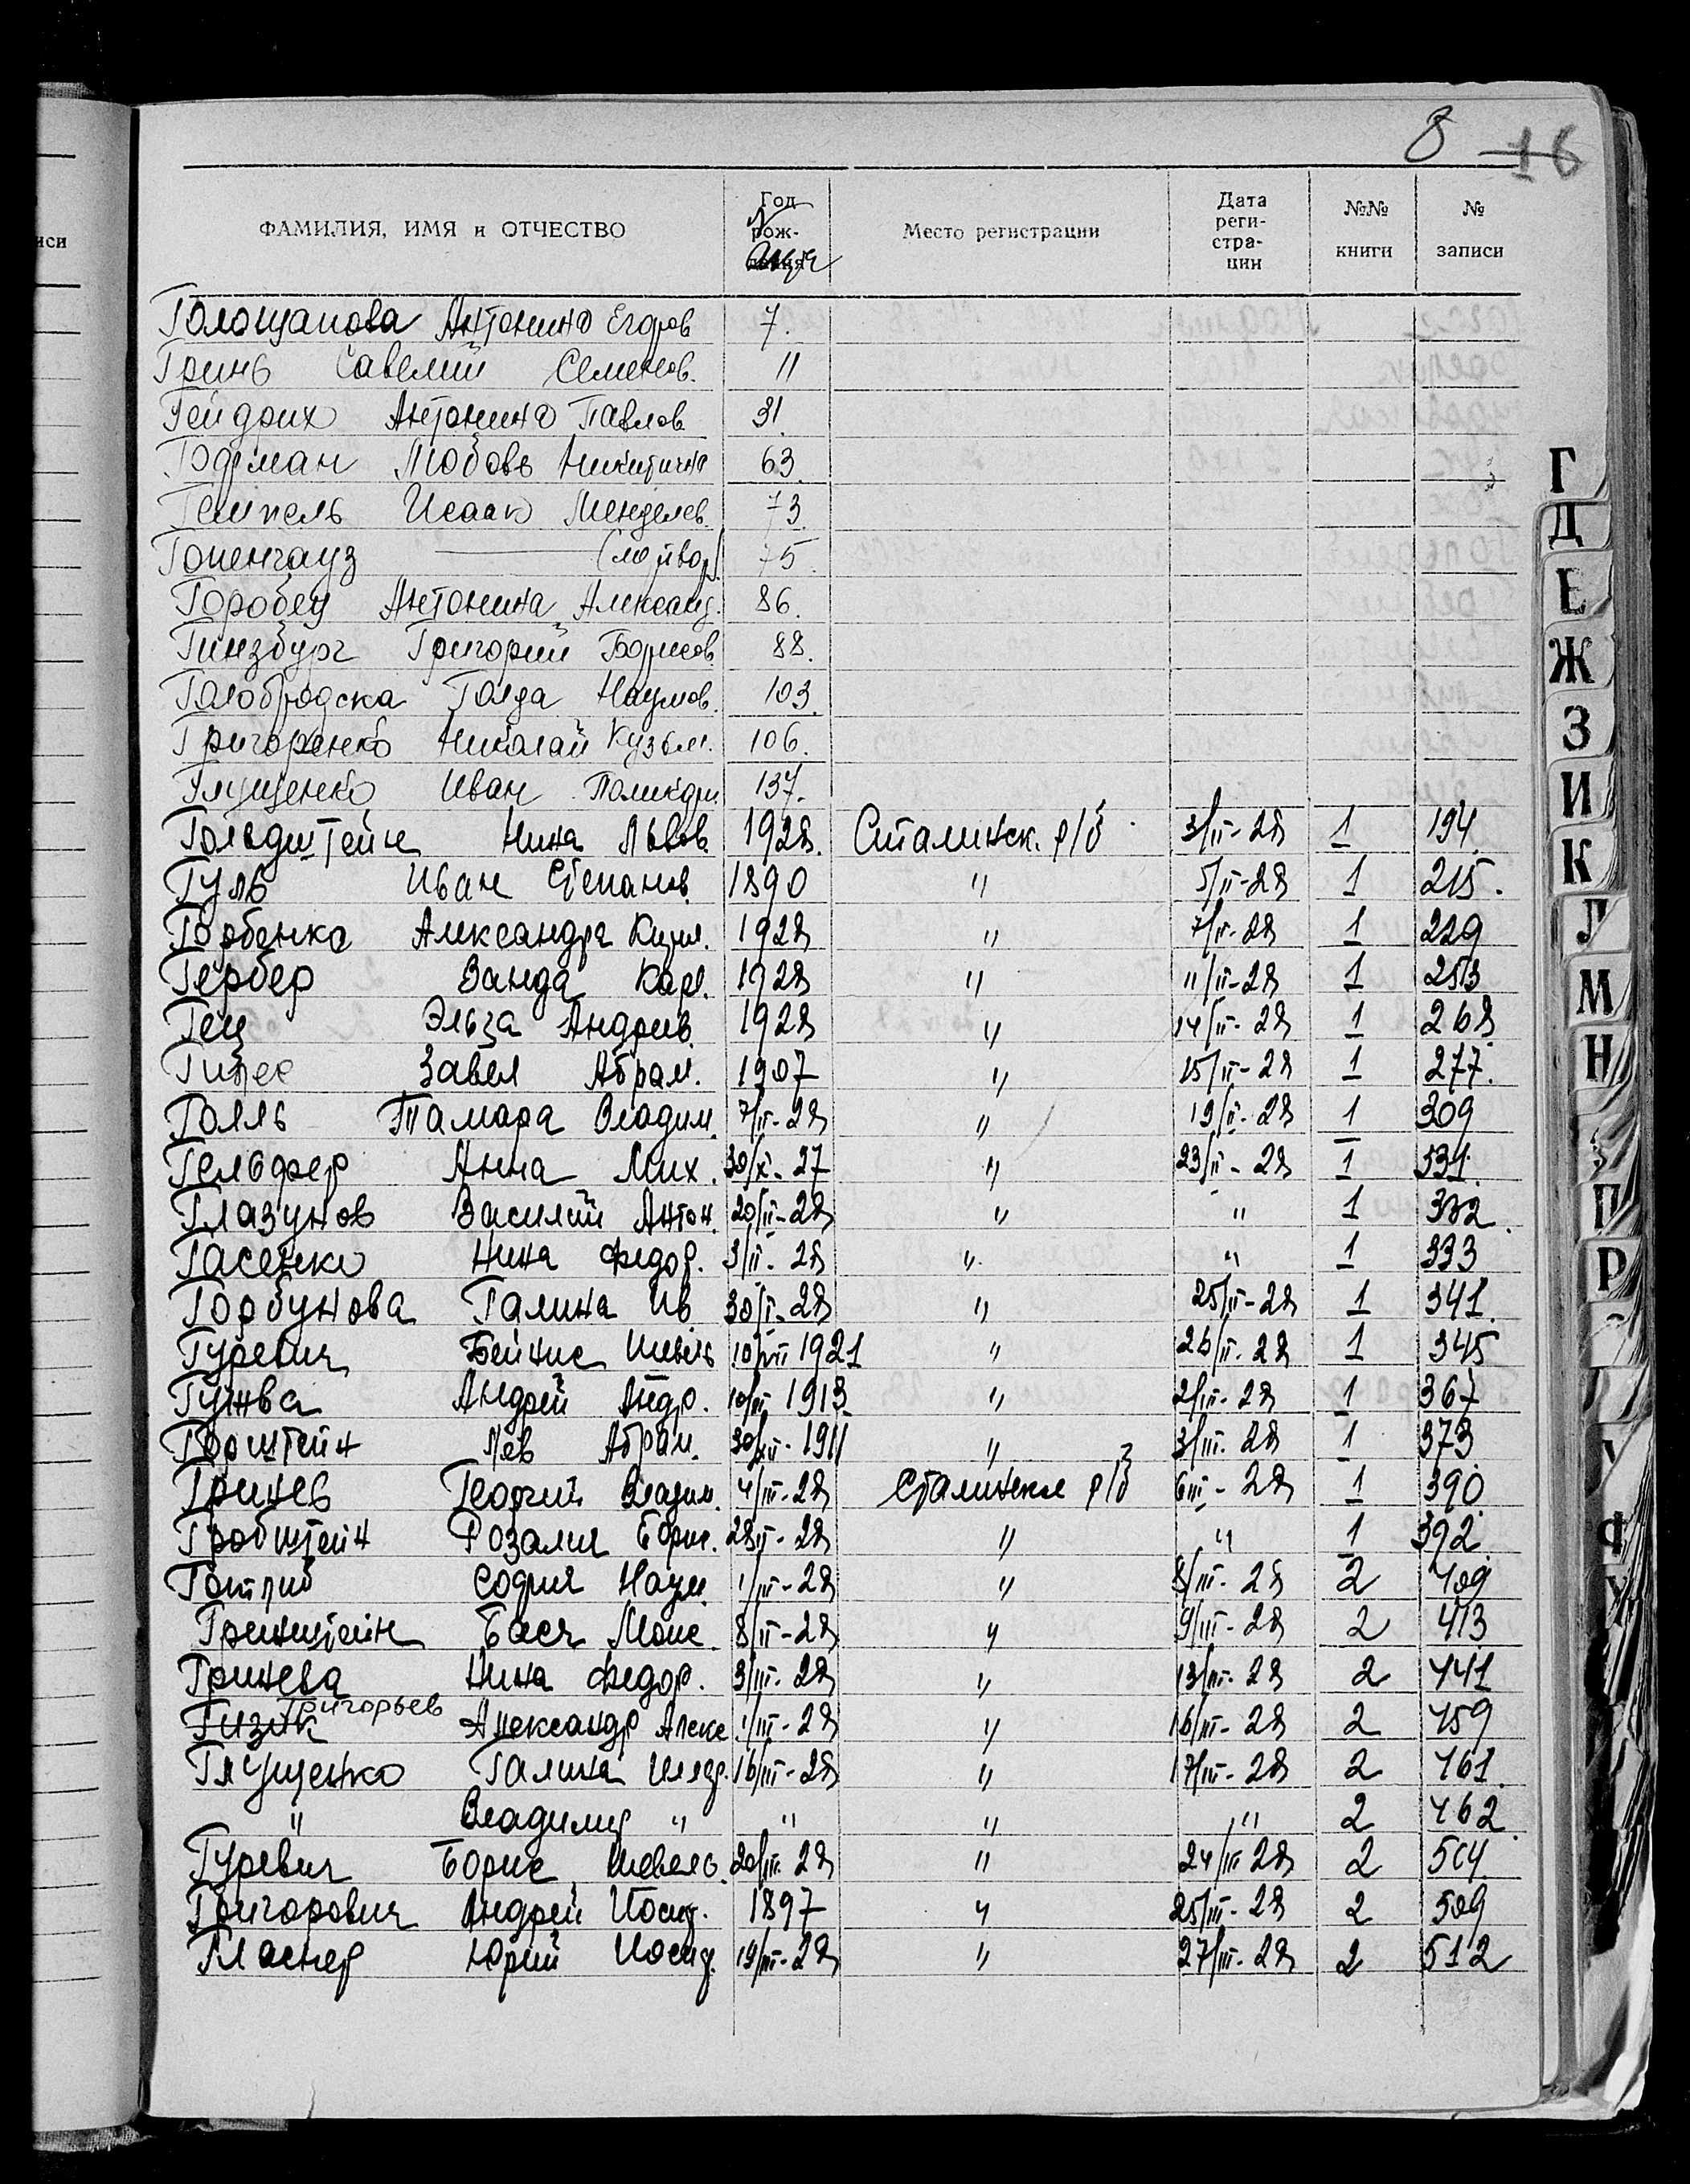 8 16
ФАМИЛИЯ, ИМЯ и ОТЧЕСТВО Год рож- Место регистрации Дата реги-стра-ции №№ книги № записи
Голощапова Антонина Егоров 7.
Гринь Савелий Семенов. 11
Гейдрих Антонина Павлов 31.
Гофман Любовь Никитична 63.
Темпель Исаак Менделев. 73.
Гопенгауз 75.
Горобец Антонина Александ. 86.
Гинзбург Григорий Борисов 88.
Голобродска Голда Наумов. 103.
Григоренко Николай Кузьм. 106.
Глущенко Иван 137.
Гольдштейн Нина Львов. 1928. Сталинск. р/б 3/II-28 1 194.
Гуль Иван Степанов. 1890 " 5/II-28 1 215.
Горбенко Александра Кирил. 1928 " 7/II-28 1 229
Гербер Ванда Карл. 1928 " 11/II-28 1 253
Гец Эльза Андреев. 1928 " 14/II-28 1 268.
Завел Абрам. 1907 " 15/II-28 1 277.
Голль Тамара Владим. 7/II-28 " 19/II-28 1 309
Гельфер Анна Мих. 30/XI-27 " 23/II-28 1 331.
Глазунов Василий Антон. 20/II-28 " " 1 332.
Гасенко Нина Федор. 3/II-28 " " 1 333
Горбунова Галина Ив. 30/I-28 " 25/II-28 1 341.
Гуревич Бейнис 10/VII 1921 " 26/II-28 1 345
Гужва Андрей Андр. 1913. " 2/III-28 1 367
Горштейн Лев Абрам. 30/XII-1911 " 3/III-28 1 373
Гринев Георгий Владим. 4/III-28 Сталинское р/б 6III-28 1 390.
Гробштейн Розалия Борис. 28II-28 " " 1 392.
Готлиб София Наум. 1/III-28 " 8/III-28 2 409.
Гринштейн Бася Моис. 8/II-28 " 9/III-28 2 413
Гринева Нина Федор. 3/III-28 " 13/III-28 2 441
Григорьев
Гизик Александр Алекс 1/III-28 " 16/III-28 2 459
Глущенко Галина 16/III-28 " 17/III-28 2 461.
" Владимир " " " " 2 462.
Гуревич Борис Шевель. 20/III-28 " 24/III 28 2 504.
Григорович Андрей Иосиф. 1897 " 25/III-28 2 509
Гласнер Юрий Иосиф. 19/III-28 " 27/III-28 2 512
Г
Д
Е
Ж
З
И
К
Л
М
Н
П
Р